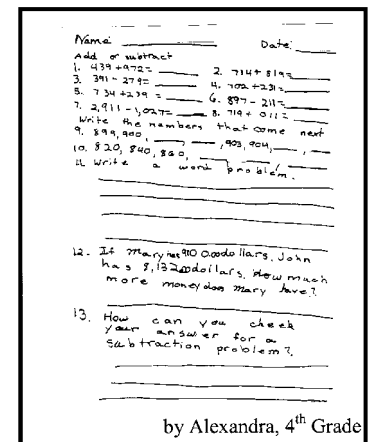 Name: ____________ Date: ______
Add or subtract
1. 439 + 972 = ______ 2. 714 + 819 = ______
3. 391 - 279 = ______ 4. 702 + 231 = ______
5. 734 + 239 = ______ 6. 897 - 211 = ______
7. 2,911 - 1,027 = ______ 8. 719 + 011 = ______
Write the numbers that come next
9. 899,900, ____, ____, 903, 904, ____, ____
10. 820, 840, 860, ____, ____, ____
11. Write a word problem.
12. If Mary has dollars, John
has 8,132 dollars, How much
more money does Mary have?
13. How can you check
your answer for a
subtraction problem?
by Alexandra, 4th Grade